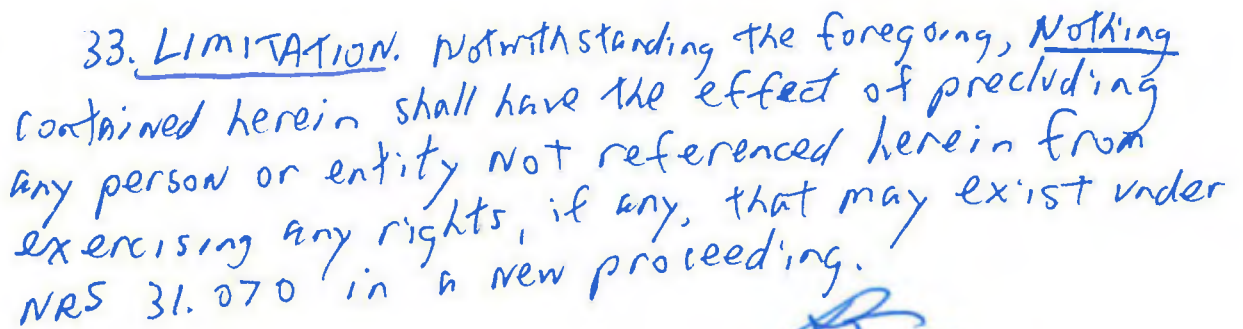 33. LIMITATION. Notwithstanding the foregoing, Nothing
contained herein shall have the effect of precluding
any person or entity not referenced herein from
exercising any rights, if any, that may exist under
NRS 31.070 in a new proceeding.